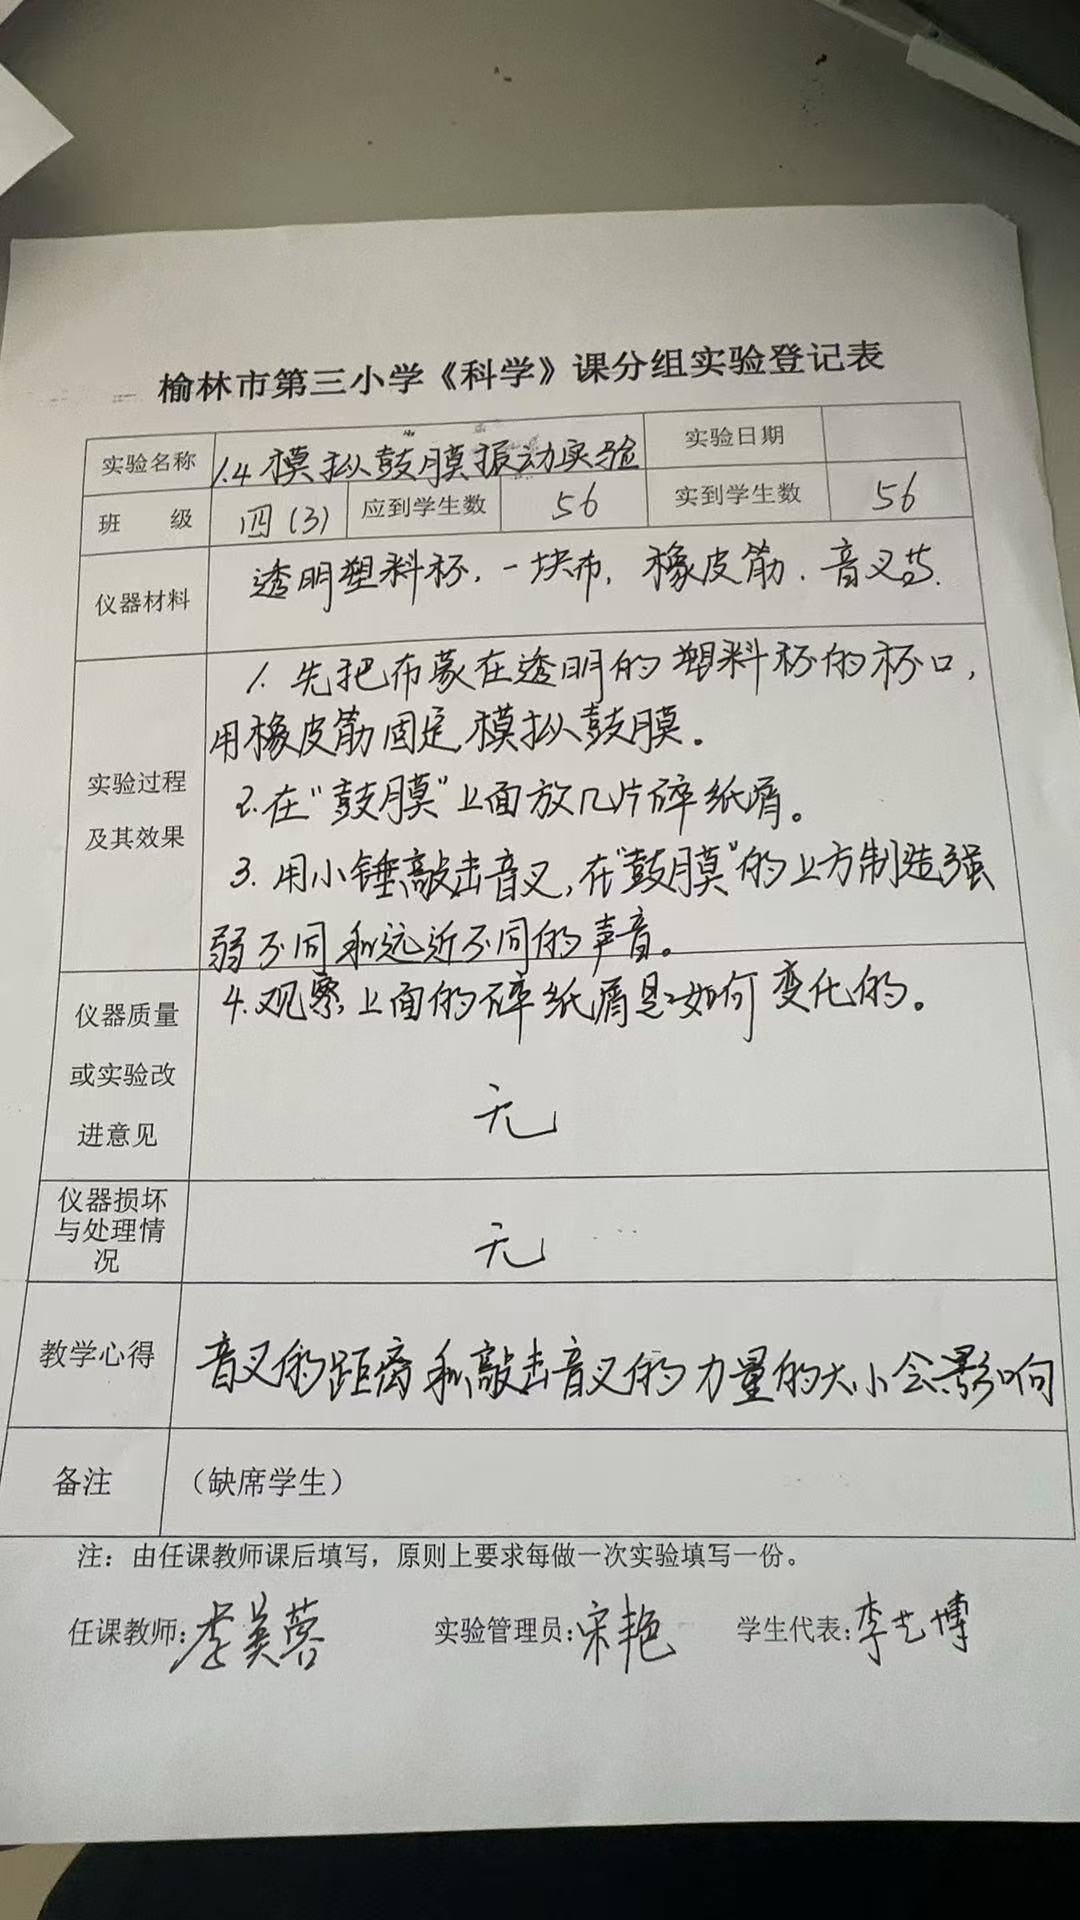 榆林市第三小学《科学》课分组实验登记表
实验名称 1.4 模拟鼓膜振动实验 实验日期
班 级 四(3) 应到学生数 56 实到学生数 56
仪器材料 透明塑料杯、一块布、橡皮筋、音叉等.
实验过程
及其效果
1. 先把布蒙在透明的塑料杯的杯口,
用橡皮筋固定,模拟鼓膜。
2.在“鼓膜”上面放几片碎纸屑。
3. 用小锤敲击音叉,在“鼓膜”的上方制造强
弱不同和远近不同的声音。
4.观察上面的碎纸屑是如何变化的。
仪器质量
或实验改
进意见
无
仪器损坏
与处理情
况
无
教学心得 音叉的距离和敲击音叉的力量的大小会影响
备注 (缺席学生)
注:由任课教师课后填写,原则上要求每做一次实验填写一份。
任课教师:李美蓉 实验管理员:宋艳 学生代表:李艺博